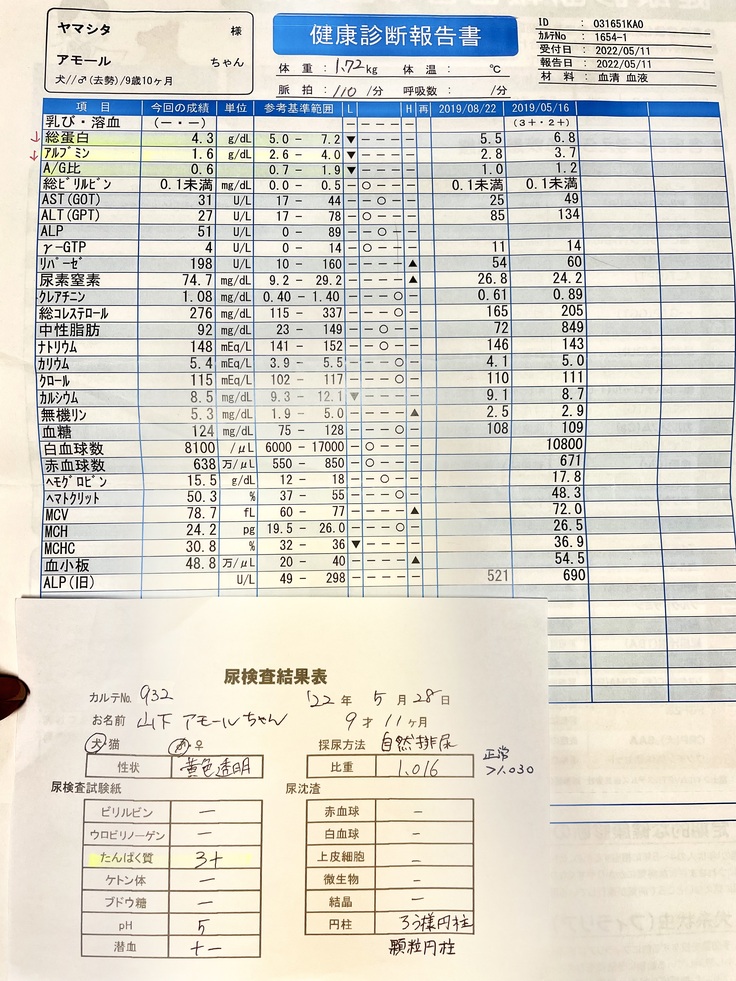 ヤマシタ 様
アモール ちゃん
犬//♂(去勢)/9歳10ヶ月
健康診断報告書
体 重 : 1.72kg 体 温 : ℃
脈 拍 : 110 /分 呼吸数 : /分
ID : 031651KA0
ｶﾙﾃNo : 1654-1
受付日 : 2022/05/11
報告日 : 2022/05/11
材 料 : 血清 血液
項 目 今回の成績 単位 参考基準範囲 L H 再 2019/08/22 2019/05/16
乳び・溶血 (－・－) －－－－－ (3+・2+)
↓ 総蛋白 4.3 g/dL 5.0 － 7.2 ▼－－－－ 5.5 6.8
↓ ｱﾙﾌﾞﾐﾝ 1.6 g/dL 2.6 － 4.0 ▼－－－－ 2.8 3.7
A/G比 0.6 0.7 － 1.9 ▼－－－－ 1.0 1.2
総ﾋﾞﾘﾙﾋﾞﾝ 0.1未満 mg/dL 0.0 － 0.5 －○－－－ 0.1未満 0.1未満
AST(GOT) 31 U/L 17 － 44 －－○－－ 25 49
ALT(GPT) 27 U/L 17 － 78 －○－－－ 85 134
ALP 51 U/L 0 － 89 －－○－－
γ-GTP 4 U/L 0 － 14 －○－－－ 11 14
ﾘﾊﾟｰｾﾞ 198 U/L 10 － 160 －－－－▲ 54 60
尿素窒素 74.7 mg/dL 9.2 － 29.2 －－－－▲ 26.8 24.2
ｸﾚｱﾁﾆﾝ 1.08 mg/dL 0.40 － 1.40 －－－○－ 0.61 0.89
総ｺﾚｽﾃﾛｰﾙ 276 mg/dL 115 － 337 －－－○－ 165 205
中性脂肪 92 mg/dL 23 － 149 －－○－－ 72 849
ﾅﾄﾘｳﾑ 148 mEq/L 141 － 152 －－○－－ 146 143
ｶﾘｳﾑ 5.4 mEq/L 3.9 － 5.5 －－－○－ 4.1 5.0
ｸﾛｰﾙ 115 mEq/L 102 － 117 －－－○－ 110 111
ｶﾙｼｳﾑ 8.5 mg/dL 9.3 － 12.1 ▼－－－－ 9.1 8.7
無機リン 5.3 mg/dL 1.9 － 5.0 －－－－▲ 2.5 2.9
血糖 124 mg/dL 75 － 128 －－－○－ 108 109
白血球数 8100 /μL 6000 － 17000 －○－－－ 10800
赤血球数 638 万/μL 550 － 850 －○－－－ 671
ﾍﾓｸﾞﾛﾋﾞﾝ 15.5 g/dL 12 － 18 －－○－－ 17.8
ﾍﾏﾄｸﾘｯﾄ 50.3 % 37 － 55 －－－○－ 48.3
MCV 78.7 fL 60 － 77 －－－－▲ 72.0
MCH 24.2 pg 19.5 － 26.0 －－－○－ 26.5
MCHC 30.8 % 32 － 36 ▼－－－－ 36.9
血小板 48.8 万/μL 20 － 40 －－－－▲ 54.5
ALP(旧) U/L 49 － 298 521 690
尿検査結果表
カルテNo. 932 '22 年 5 月 28 日
お名前 山下 アモールちゃん 9 才 11 ヶ月
犬 猫 ♂ ♀ 採尿方法 自然排尿
性状 黄色透明 比重 1.016 正常 >1.030
尿検査試験紙 尿沈渣
ビリルビン － 赤血球 －
ウロビリノーゲン － 白血球 －
たんぱく質 3+ 上皮細胞 －
ケトン体 － 微生物 －
ブドウ糖 － 結晶 －
pH 5 円柱 ろう様円柱
潜血 +－ 顆粒円柱